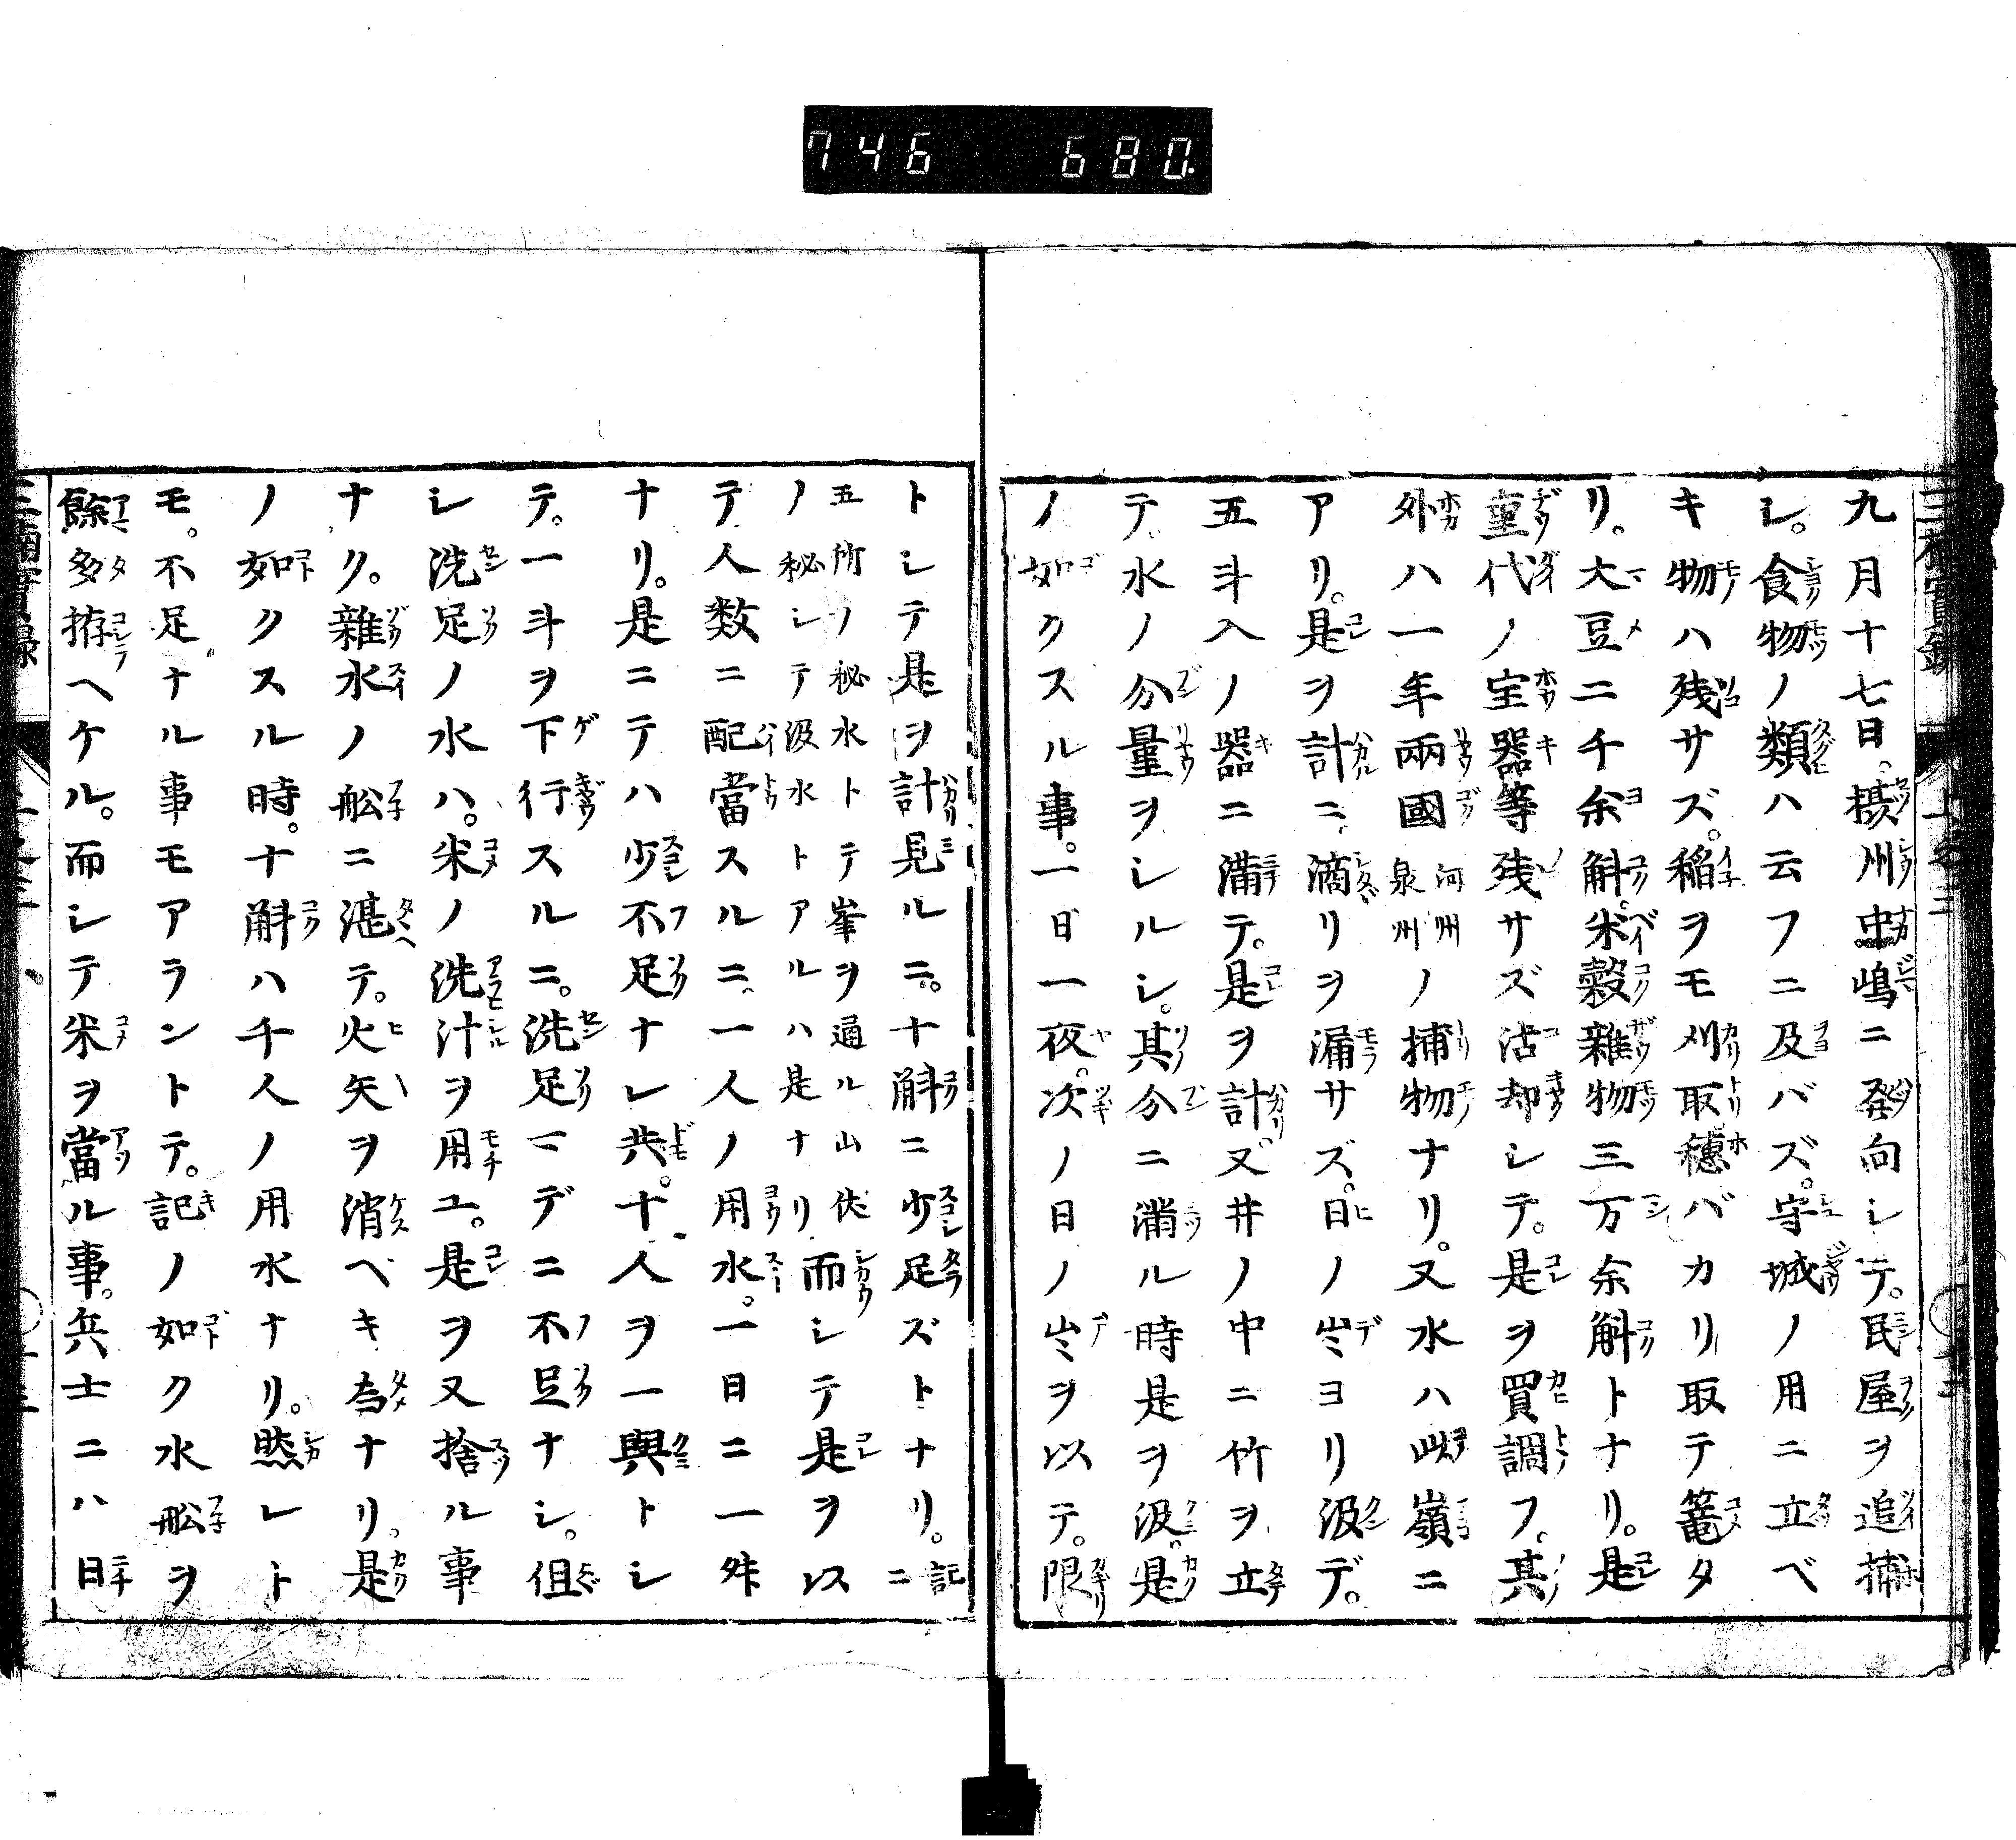 746 680.
九月十七日。摂州中嶋ニ発向シテ。民屋ヲ追捕
シ。食物ノ類ハ云フニ及バズ。守城ノ用ニ立ベ
キ物ハ残サズ。稲ヲモ刈取。穂バカリ取テ篭タ
リ。大豆二千余斛。米穀雑物三万余斛トナリ。是
重代ノ宝器等残サズ沽却シテ。是ヲ買調フ。其
外ハ一年兩國河州泉州ノ捕物ナリ。又水ハ此嶺ニ
アリ。是ヲ計ニ。滴リヲ漏サズ。日ノ出ヨリ汲デ。
五斗入ノ器ニ満テ。是ヲ計。又井ノ中ニ竹ヲ立
テ。水ノ分量ヲシルシ。其分ニ満ル時是ヲ汲。是
ノ如クスル事。一日一夜。次ノ日ノ出ヲ以テ。限
トシテ是ヲ計見ルニ。十斛ニ少足ズトナリ。記ニ
五所ノ秘水トテ峯ヲ通ル山伏
ノ秘シテ汲水トアルハ是ナリ
而シテ是ヲ以
テ人数ニ配當スルニ。一人ノ用水。一日ニ一舛
ナリ。是ニテハ少不足ナレ共。十人ヲ一與トシ
テ。一斗ヲ下行スルニ。洗足マデニ不足ナシ。但
シ洗足ノ水ハ。米ノ洗汁ヲ用ユ。是ヲ又捨ル事
ナク。雜水ノ舩ニ湛テ。火矢ヲ消ベキ為ナリ。是
ノ如クスル時。十斛ハ千人ノ用水ナリ。然レト
モ。不足ナル事モアラントテ。記ノ如ク水舩ヲ
餘多拵ヘケル。而シテ米ヲ當ル事。兵士ニハ日